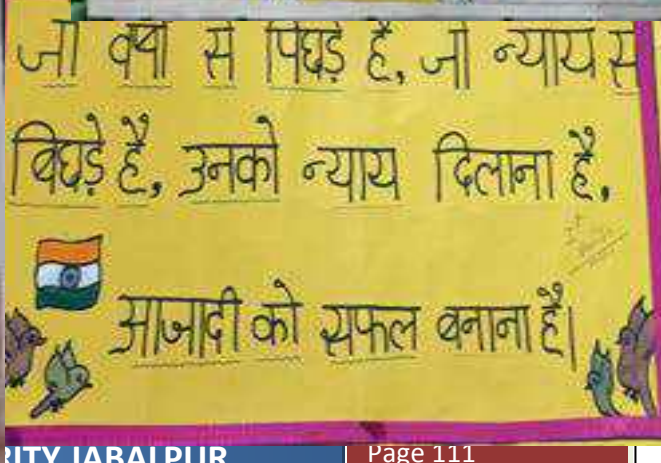 जो वर्षो से पिघड़े है, जो न्याय से
बिघड़े है, उनको न्याय दिलाना है,
आजादी को सफल बनाना है।
RITY JABALPUR Page 111